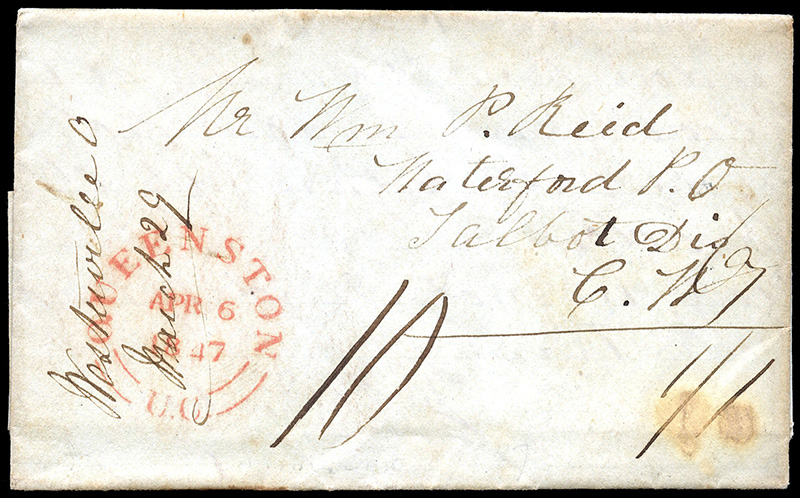 Mr Wm P. Reid
Waterford P.O
Talbot Dis
C. W
Westville O
March 29
QUEENSTON
APR 6
1847
U.C
10
7
1/1